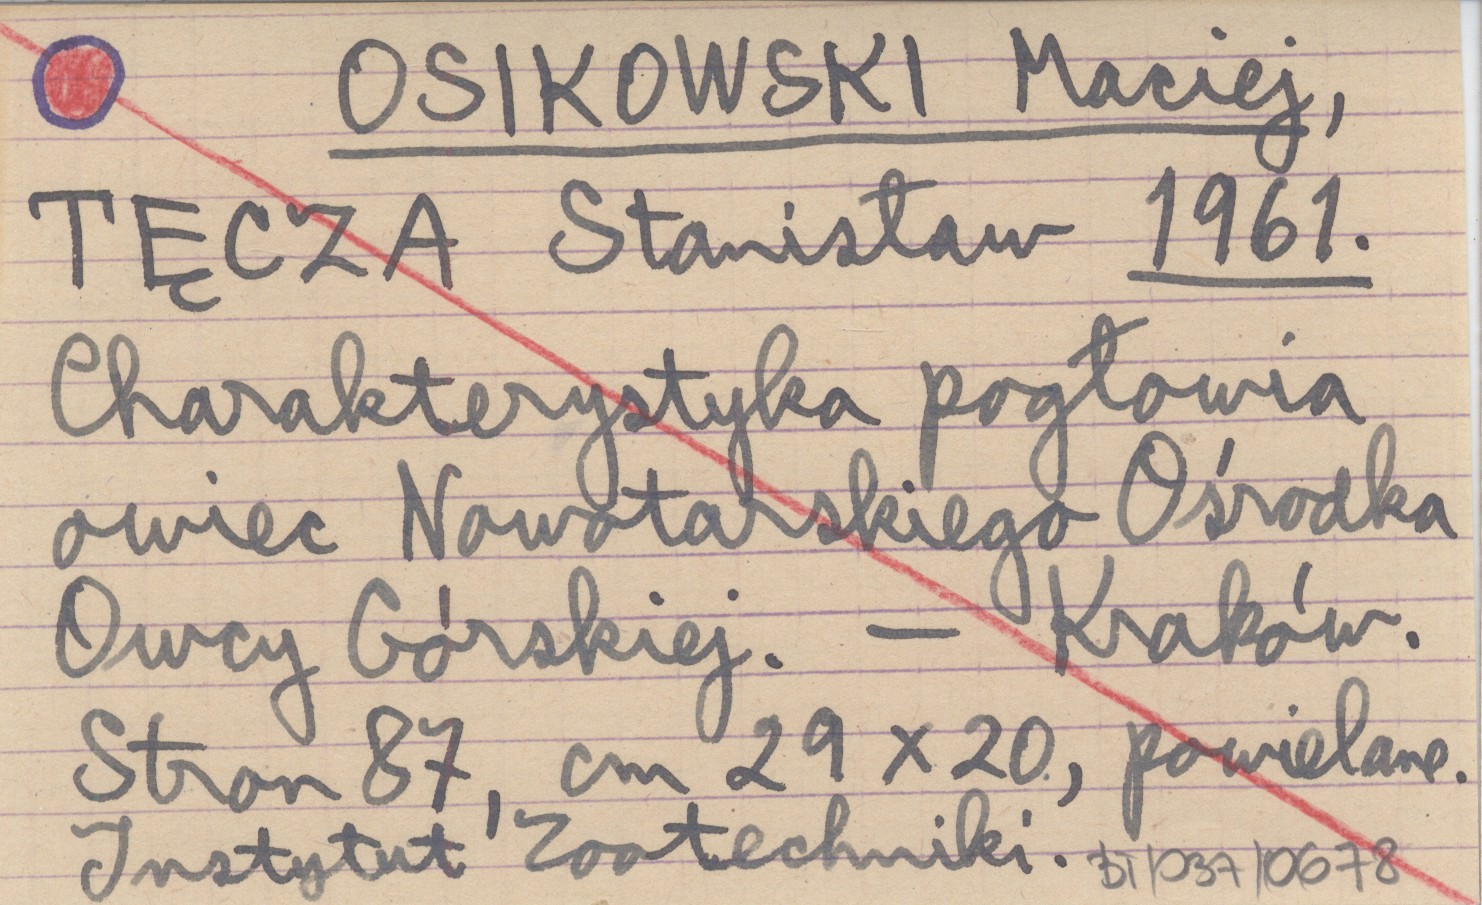 OSIKOWSKI Maciej,
TĘCZA Stanisław 1961.
Charakterystyka pogłowia
owiec Nowotarskiego Ośrodka
Owcy Górskiej. — Kraków.
Stron 87, cm 29 x 20, powielane.
Instytut Zootechniki.
BT/037/0678